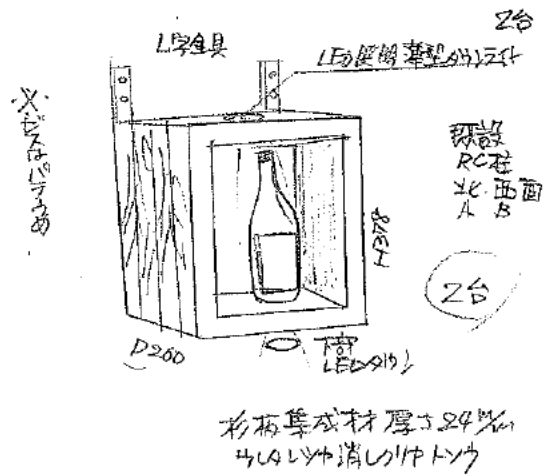 2台
L字金具
LED照明 薄型ダウンライト
※ビスはパテうめ
RC柱
北.西面
A B
H378
2台
D260
下部
LEDダウン
杉板集成材 厚さ24m/m
ウレタンツヤ消しクリヤトソウ